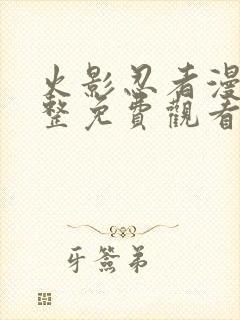 火影忍者漫
整免費觀看
牙簽弟